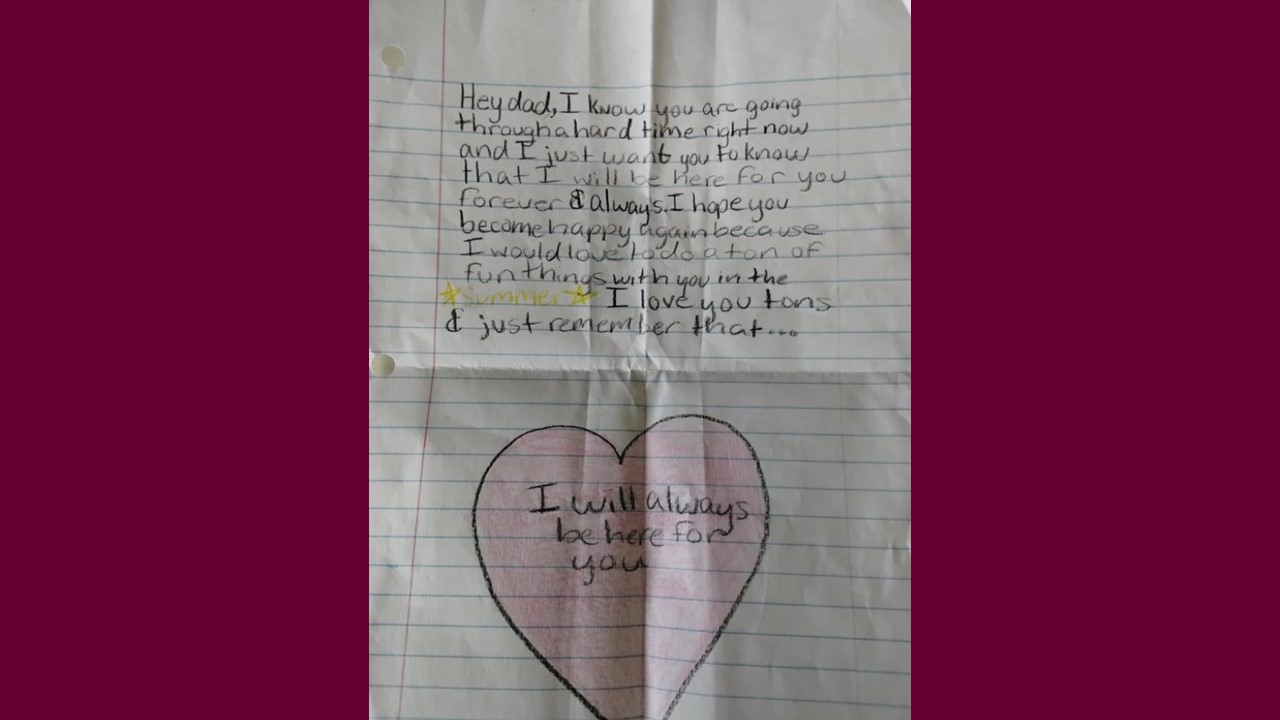 Hey dad, I know you are going
through a hard time right now
and I just want you to know
that I will be here for you
forever & always. I hope you
become happy again because
I would love to do a ton of
fun things with you in the
☆summer☆ I love you tons
& just remember that...
I will always
be here for
you